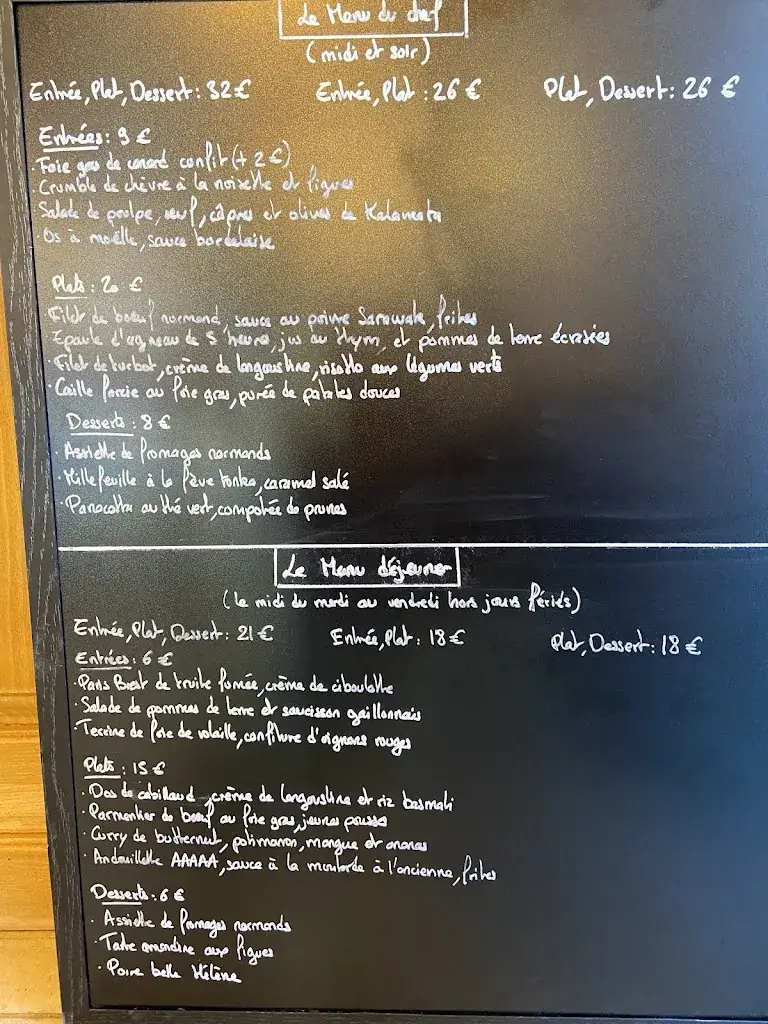 Le Menu du chef
(midi et soir)
Entrée, Plat, Dessert : 32 € Entrée, Plat : 26 € Plat, Dessert : 26 €
Entrées : 9 €
· Foie gras de canard confit (+ 2 €)
Crumble de chèvre à la noisette et figues
Salade de poulpe, œuf, câpres et olives de Kalamata
· Os à moëlle, sauce bordelaise
Plats : 20 €
· Filet de boeuf normand, sauce au poivre Sarawak, frites
· Epaule d'agneau de 5 heures, jus au thym, et pommes de terre écrasées
· Filet de turbot, crème de langoustine, risotto aux légumes verts
· Caille farcie au foie gras, purée de patates douces
Desserts : 8 €
· Assiette de fromages normands
· Millefeuille à la fève tonka, caramel salé
· Panacotta au thé vert, compotée de prunes
Le Menu déjeuner
(le midi du mardi au vendredi hors jours fériés)
Entrée, Plat, Dessert : 21 € Entrée, Plat : 18 € Plat, Dessert : 18 €
Entrées : 6 €
· Paris Brest de truite fumée, crème de ciboulette
· Salade de pommes de terre et saucisson gaillonnais
· Terrine de foie de volaille, confiture d'oignons rouges
Plats : 15 €
· Dos de cabillaud, crème de langoustine et riz basmati
· Parmentier de boeuf au foie gras, jeunes pousses
· Curry de butternut, potimaron, mangue et ananas
· Andouillette AAAAA, sauce à la moutarde à l'ancienne, frites
Desserts : 6 €
· Assiette de fromages normands
· Tarte amandine aux figues
· Poire belle Hélène